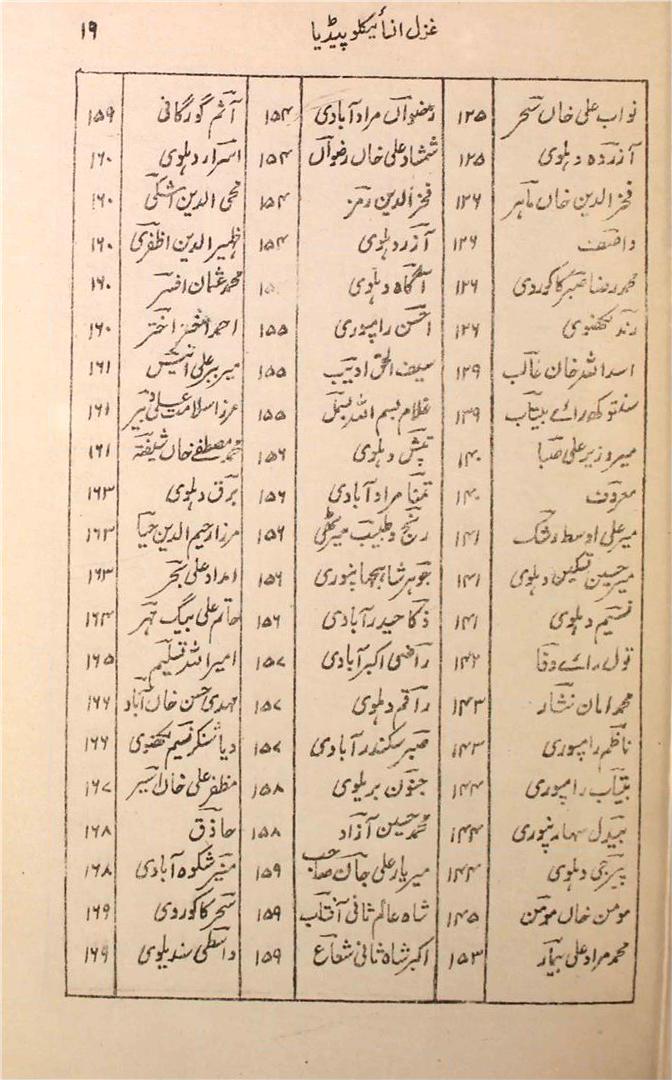 غزل انسائیکلوپیڈیا ۱۹
نواب علی خاں سحر ۱۲۵ رضواں مرادآبادی ۱۵۴ آثم گورگانی ۱۵۹
آزردہ دہلوی ۱۲۵ شمشاد علی خاں رضواں ۱۵۴ اسرار دہلوی ۱۶۰
فخرالدین خاں ماہر ۱۲۶ فخرالدین رمز ۱۵۴ محی الدین اشکی ۱۶۰
۱۲۶ آزر دہلوی ۱۵۴ ظہیرالدین اظفری ۱۶۰
محمد رضا صبر کاکوروی ۱۲۶ آگاہ دہلوی محمد عثمان افسر ۱۶۰
رند لکھنوی ۱۲۶ احسن رامپوری ۱۵۵ احمد اختر اختر ۱۶۰
اسداللہ خان غالب ۱۲۹ سیف الحق ادیب ۱۵۵ میر ببر علی انیس ۱۶۱
سنتوکھ رائے بیتاب ۱۳۹ غلام بسم اللہ بسمل ۱۵۵ مرزا سلامت علی دبیر ۱۶۱
میر وزیر علی صبا ۱۴۰ تپش دہلوی ۱۵۶ محمد مصطفےٰ خاں شیفتہ ۱۶۱
معروف ۱۴۰ تمنا مرادآبادی ۱۵۶ برق دہلوی ۱۶۳
میر علی اوسط رشک ۱۴۱ رنج و طبیب میرٹھی ۱۵۶ مرزا رحیم الدین حیا ۱۶۳
میر حسین تسکین دہلوی ۱۴۱ جوہر شاہجہانپوری ۱۵۶ امداد علی بحر ۱۶۳
نسیم دہلوی ۱۴۱ ذکا حیدرآبادی ۱۵۶ حاتم علی بیگ مہر ۱۶۴
نول رائے وفا ۱۴۲ راضی اکبرآبادی ۱۵۷ امیراللہ تسلیم ۱۶۵
محمد امان نثار ۱۴۳ راقم دہلوی ۱۵۷ مہدی حسن خاں آباد ۱۶۶
ناظم رامپوری ۱۴۳ صبر سکندرآبادی ۱۵۷ دیا شنکر نسیم لکھنوی ۱۶۶
بیتاب رامپوری ۱۴۴ جنون بریلوی ۱۵۸ مظفر علی خاں اسیر ۱۶۷
بیدل سہارنپوری ۱۴۴ محمد حسین آزاد ۱۵۸ حاذق ۱۶۸
پیرجی دہلوی ۱۴۴ میر یار علی جان صاحب ۱۵۹ منیر شکوہ آبادی ۱۶۸
مومن خاں مومن ۱۴۵ شاہ عالم ثانی آفتاب ۱۵۹ سحر کاکوروی ۱۶۹
محمد مراد علی بیمار ۱۵۳ اکبر شاہ ثانی شعاع ۱۵۹ واسطی سندیلوی ۱۶۹